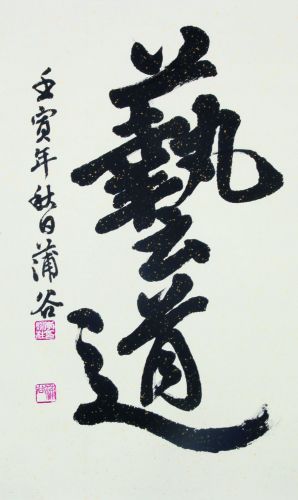 藝道
壬寅年秋日蒲谷